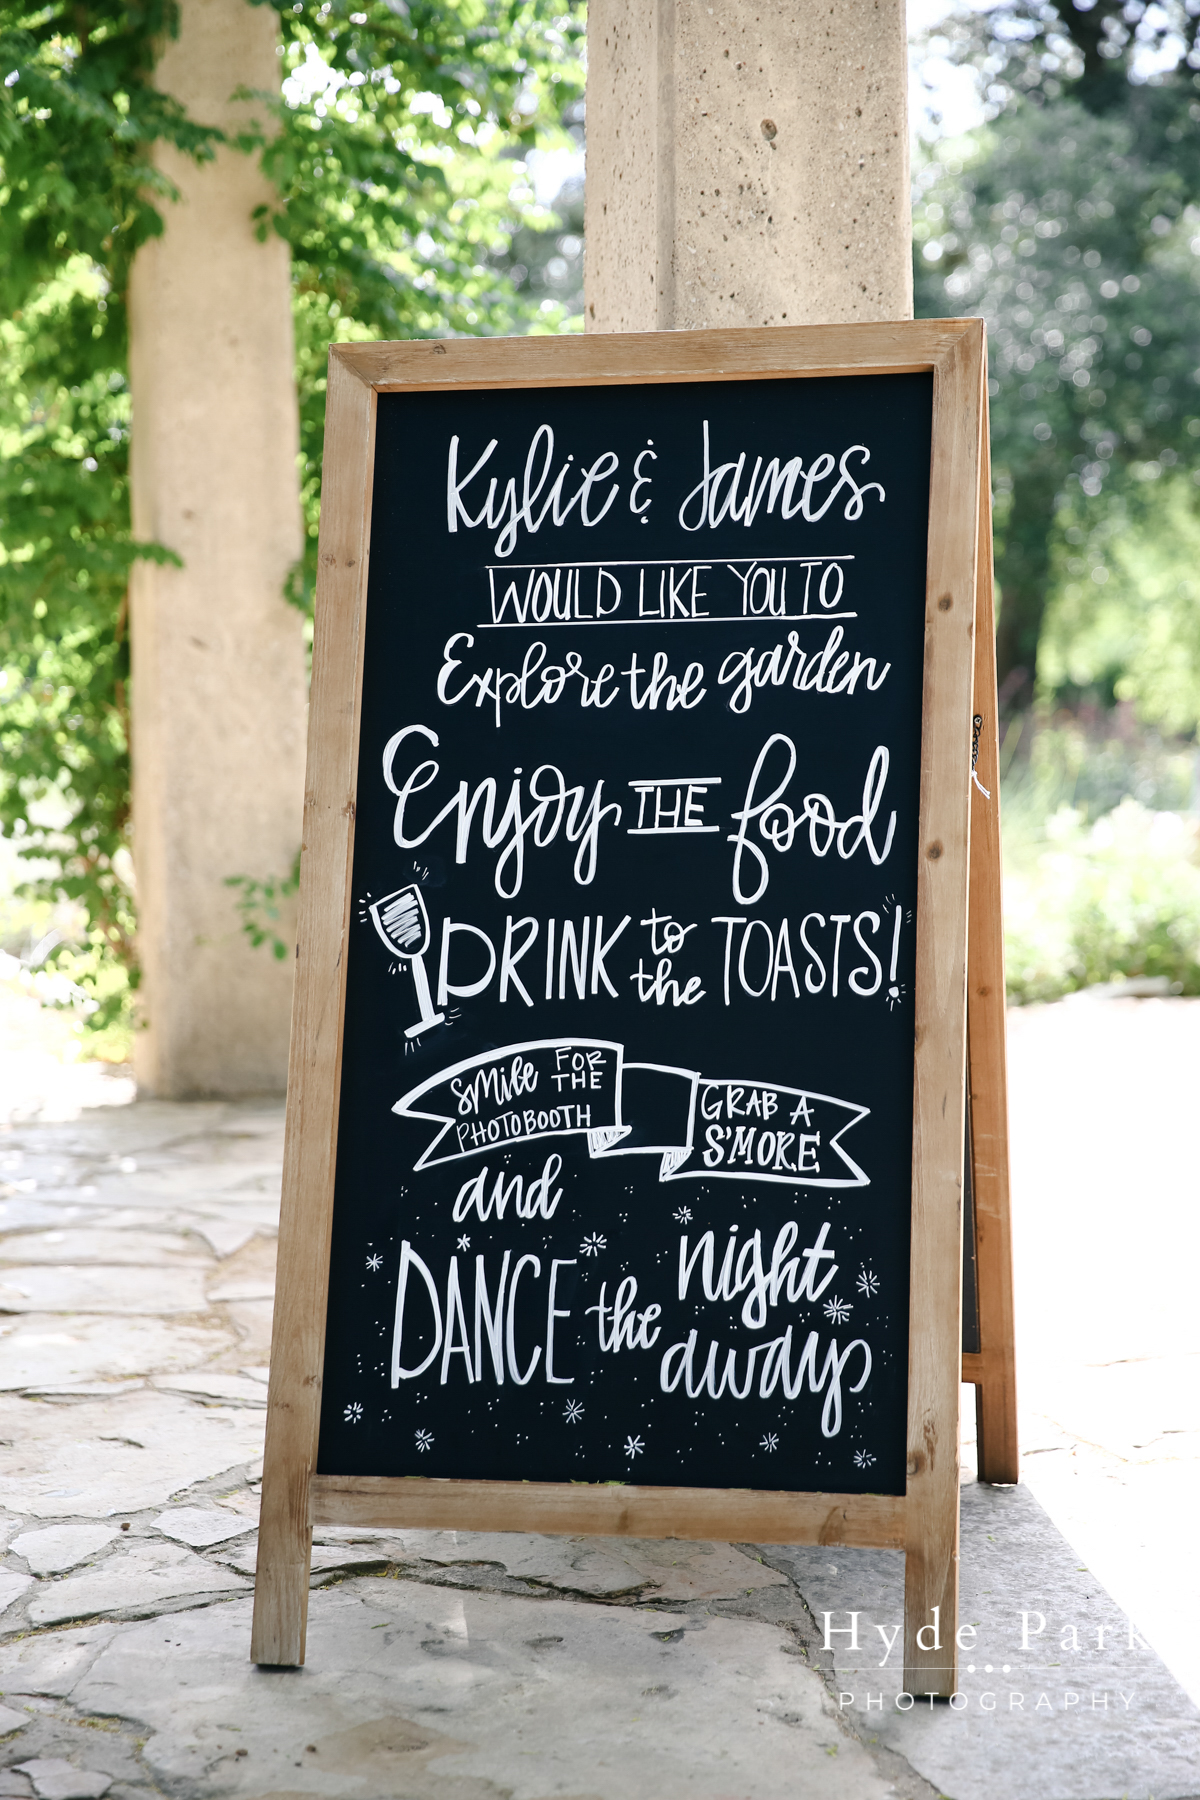 Kylie & James
WOULD LIKE YOU TO
Explore the garden
Enjoy THE food
DRINK to the TOASTS!
Smile FOR THE
PHOTOBOOTH
GRAB A
S'MORE
and
DANCE the night away
Hyde Park
PHOTOGRAPHY